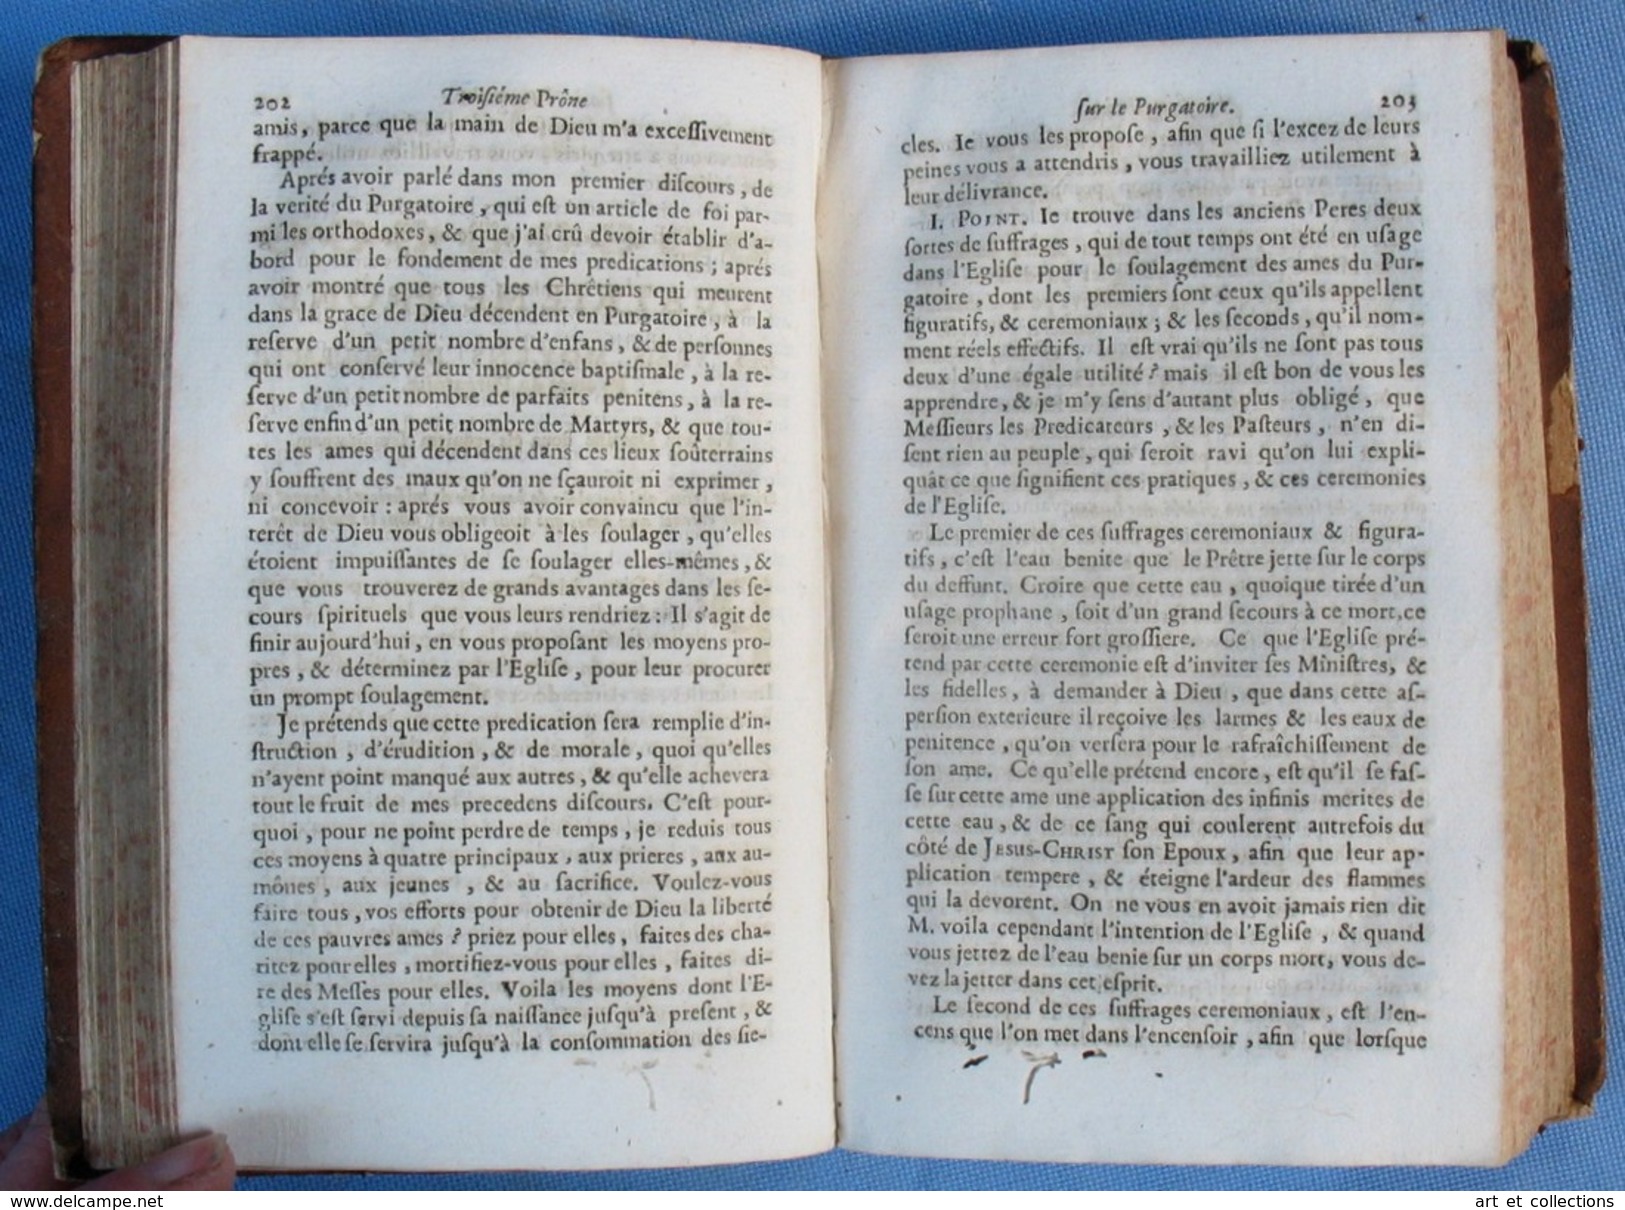 202
Troiſiéme Prône
amis, parce que la main de Dieu m'a exceſſivement
frappé.
Aprés avoir parlé dans mon premier diſcours, de
la verité du Purgatoire, qui eſt un article de foi par-
mi les orthodoxes, & que j'ai crû devoir établir d'a-
bord pour le fondement de mes predications ; aprés
avoir montré que tous les Chrêtiens qui meurent
dans la grace de Dieu décendent en Purgatoire, à la
reſerve d'un petit nombre d'enfans, & de perſonnes
qui ont conſervé leur innocence baptiſmale, à la re-
ſerve d'un petit nombre de parfaits penitens, à la re-
ſerve enfin d'un petit nombre de Martyrs, & que tou-
tes les ames qui décendent dans ces lieux ſoûterrains
y ſouffrent des maux qu'on ne ſçauroit ni exprimer,
ni concevoir : aprés vous avoir convaincu que l'in-
terêt de Dieu vous obligeoit à les ſoulager, qu'elles
étoient impuiſſantes de ſe ſoulager elles-mêmes, &
que vous trouverez de grands avantages dans les ſe-
cours ſpirituels que vous leurs rendriez : Il s'agit de
finir aujourd'hui, en vous propoſant les moyens pro-
pres, & déterminez par l'Egliſe, pour leur procurer
un prompt ſoulagement.
Je prétends que cette predication ſera remplie d'in-
ſtruction, d'érudition, & de morale, quoi qu'elles
n'ayent point manqué aux autres, & qu'elle achevera
tout le fruit de mes precedens diſcours. C'eſt pour-
quoi, pour ne point perdre de temps, je reduis tous
ces moyens à quatre principaux, aux prieres, aux au-
mônes, aux jeunes, & au ſacrifice. Voulez-vous
faire tous, vos efforts pour obtenir de Dieu la liberté
de ces pauvres ames ? priez pour elles, faites des cha-
ritez pour elles, mortifiez-vous pour elles, faites di-
re des Meſſes pour elles. Voila les moyens dont l'E-
gliſe s'eſt ſervi depuis ſa naiſſance juſqu'à preſent, &
dont elle ſe ſervira juſqu'à la conſommation des ſie-
ſur le Purgatoire.
203
cles. Ie vous les propoſe, afin que ſi l'excez de leurs
peines vous a attendris, vous travailliez utilement à
leur délivrance.
I. POINT. Ie trouve dans les anciens Peres deux
ſortes de ſuffrages, qui de tout temps ont été en uſage
dans l'Egliſe pour le ſoulagement des ames du Pur-
gatoire, dont les premiers ſont ceux qu'ils appellent
figuratifs, & ceremoniaux ; & les ſeconds, qu'il nom-
ment réels effectifs. Il eſt vrai qu'ils ne ſont pas tous
deux d'une égale utilité ? mais il eſt bon de vous les
apprendre, & je m'y ſens d'autant plus obligé, que
Meſſieurs les Predicateurs, & les Paſteurs, n'en di-
ſent rien au peuple, qui ſeroit ravi qu'on lui expli-
quât ce que ſignifient ces pratiques, & ces ceremonies
de l'Egliſe.
Le premier de ces ſuffrages ceremoniaux & figura-
tifs, c'eſt l'eau benite que le Prêtre jette ſur le corps
du deffunt. Croire que cette eau, quoique tirée d'un
uſage prophane, ſoit d'un grand ſecours à ce mort, ce
ſeroit une erreur fort groſſiere. Ce que l'Egliſe pré-
tend par cette ceremonie eſt d'inviter ſes Miniſtres, &
les fidelles, à demander à Dieu, que dans cette aſ-
perſion exterieure il reçoive les larmes & les eaux de
penitence, qu'on verſera pour le rafraîchiſſement de
ſon ame. Ce qu'elle prétend encore, eſt qu'il ſe faſ-
ſe ſur cette ame une application des infinis merites de
cette eau, & de ce ſang qui coulerent autrefois du
côté de JESUS-CHRIST ſon Epoux, afin que leur ap-
plication tempere, & éteigne l'ardeur des flammes
qui la devorent. On ne vous en avoit jamais rien dit
M. voila cependant l'intention de l'Egliſe, & quand
vous jettez de l'eau benie ſur un corps mort, vous de-
vez la jetter dans cet eſprit.
Le ſecond de ces ſuffrages ceremoniaux, eſt l'en-
cens que l'on met dans l'encenſoir, afin que lorſque
www.delcampe.net
art et collections